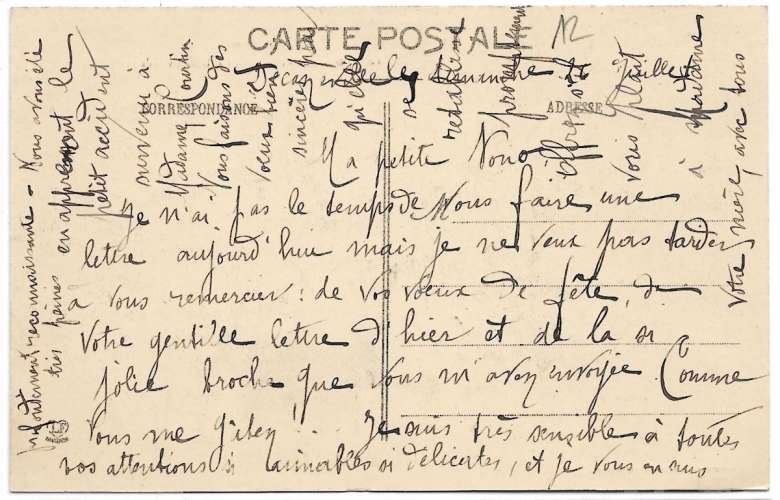 CARTE POSTALE
12
CORRESPONDANCE
ADRESSE
le dimanche Juillet
Ma petite Nono
Je n'ai pas le temps de vous faire une
lettre aujourd'hui mais je ne veux pas tarder
a vous remercier : de vos voeux de fête, de
votre gentille lettre d'hier et de la si
jolie broche que vous m'avez envoyée. Comme
vous me gâtez... Je suis très sensible à toutes
vos attentions si aimables si délicates, et je vous en suis
profondément reconnaissante - Nous avons été
très peinés
en apprenant le
petit accident
survenu à
Madame
Nous faisons des
voeux bien
sincères
qu'elle
se
rétablisse
promptement
s'il
vous plait
à Madame
votre mère, avec tous